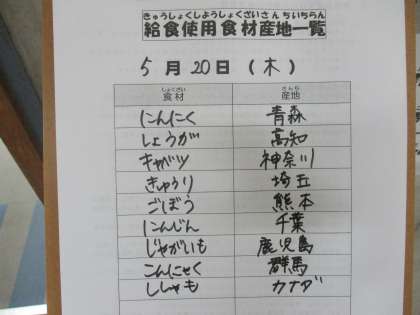 きゅうしょくしようしょくざいさんちいちらん
給食使用食材産地一覧
5月20日(木)
しょくざい さんち
食材 産地
にんにく 青森
しょうが 高知
キャベツ 神奈川
きゅうり 埼玉
ごぼう 熊本
にんじん 千葉
じゃがいも 鹿児島
こんにゃく 群馬
ししゃも カナダ